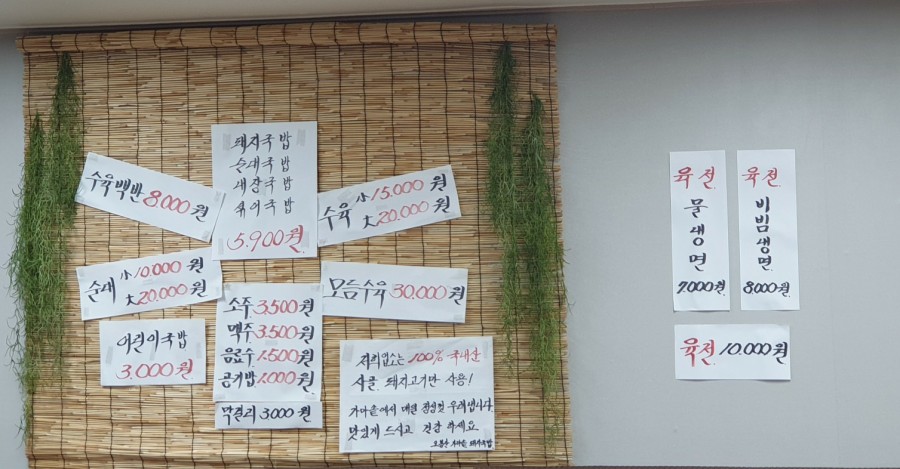 수육백반 8.000원
돼지국밥
순대국밥
내장국밥
섞어국밥
5.900원
수육 小 15.000원
大 20.000원
순대 小 10.000원
大 20.000원
모듬수육 30.000원
어린이국밥
3.000원
소주 3.500원
맥주 3.500원
음료수 1.500원
공기밥 1.000원
막걸리 3000원
저희업소는 100% 국내산
사골, 돼지고기만 사용!
가마솥에서 매일 정성껏 우려냅니다.
맛있게 드시고 건강 하세요.
가마솥 돼지국밥
육전
물생면
7000원
육전
비빔생면
8000원
육전 10.000원